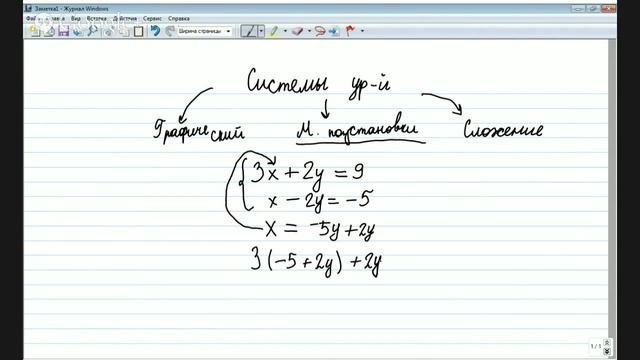 Заметка1 - Журнал Windows
Действия Сервис Справка
Ширина страницы
Системы ур-й
Графический М. подстановки Сложение
3x + 2y = 9
x - 2y = -5
x = -5y + 2y
3(-5 + 2y) + 2y
1 / 1